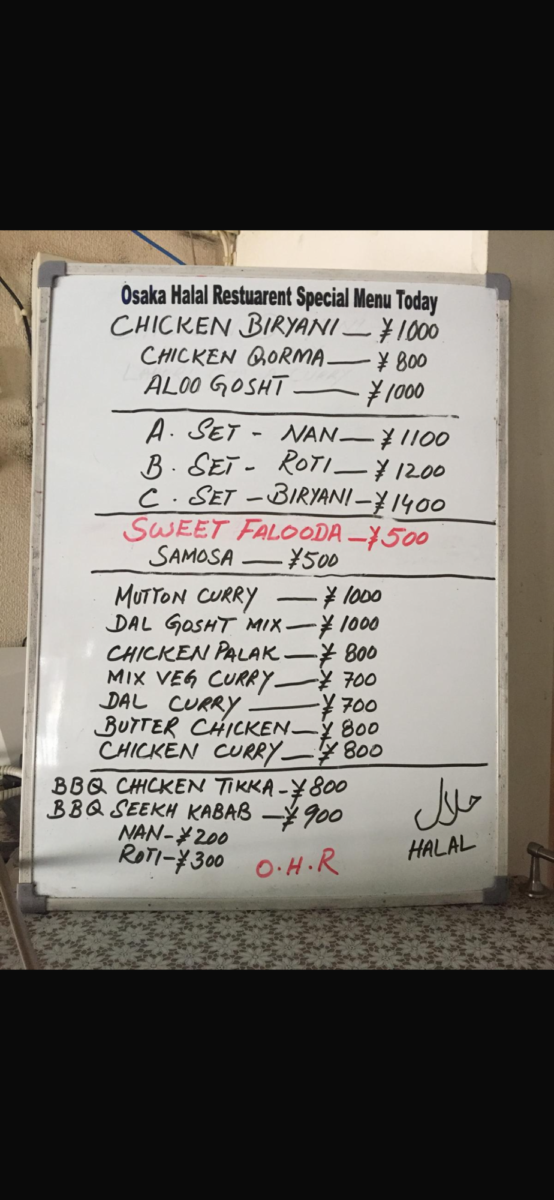 Osaka Halal Restuarent Special Menu Today
CHICKEN BIRYANI — ¥1000
CHICKEN QORMA — ¥ 800
ALOO GOSHT — ¥1000
A. SET - NAN — ¥1100
B. SET - ROTI — ¥ 1200
C. SET - BIRYANI - ¥1400
SWEET FALOODA - ¥500
SAMOSA — ¥500
MUTTON CURRY — ¥ 1000
DAL GOSHT MIX — ¥ 1000
CHICKEN PALAK — ¥ 800
MIX VEG CURRY — ¥ 700
DAL CURRY — ¥ 700
BUTTER CHICKEN — ¥ 800
CHICKEN CURRY — ¥ 800
BBQ CHICKEN TIKKA - ¥800
BBQ SEEKH KABAB — ¥900
NAN - ¥200
ROTI - ¥300
O.H.R
حلال
HALAL